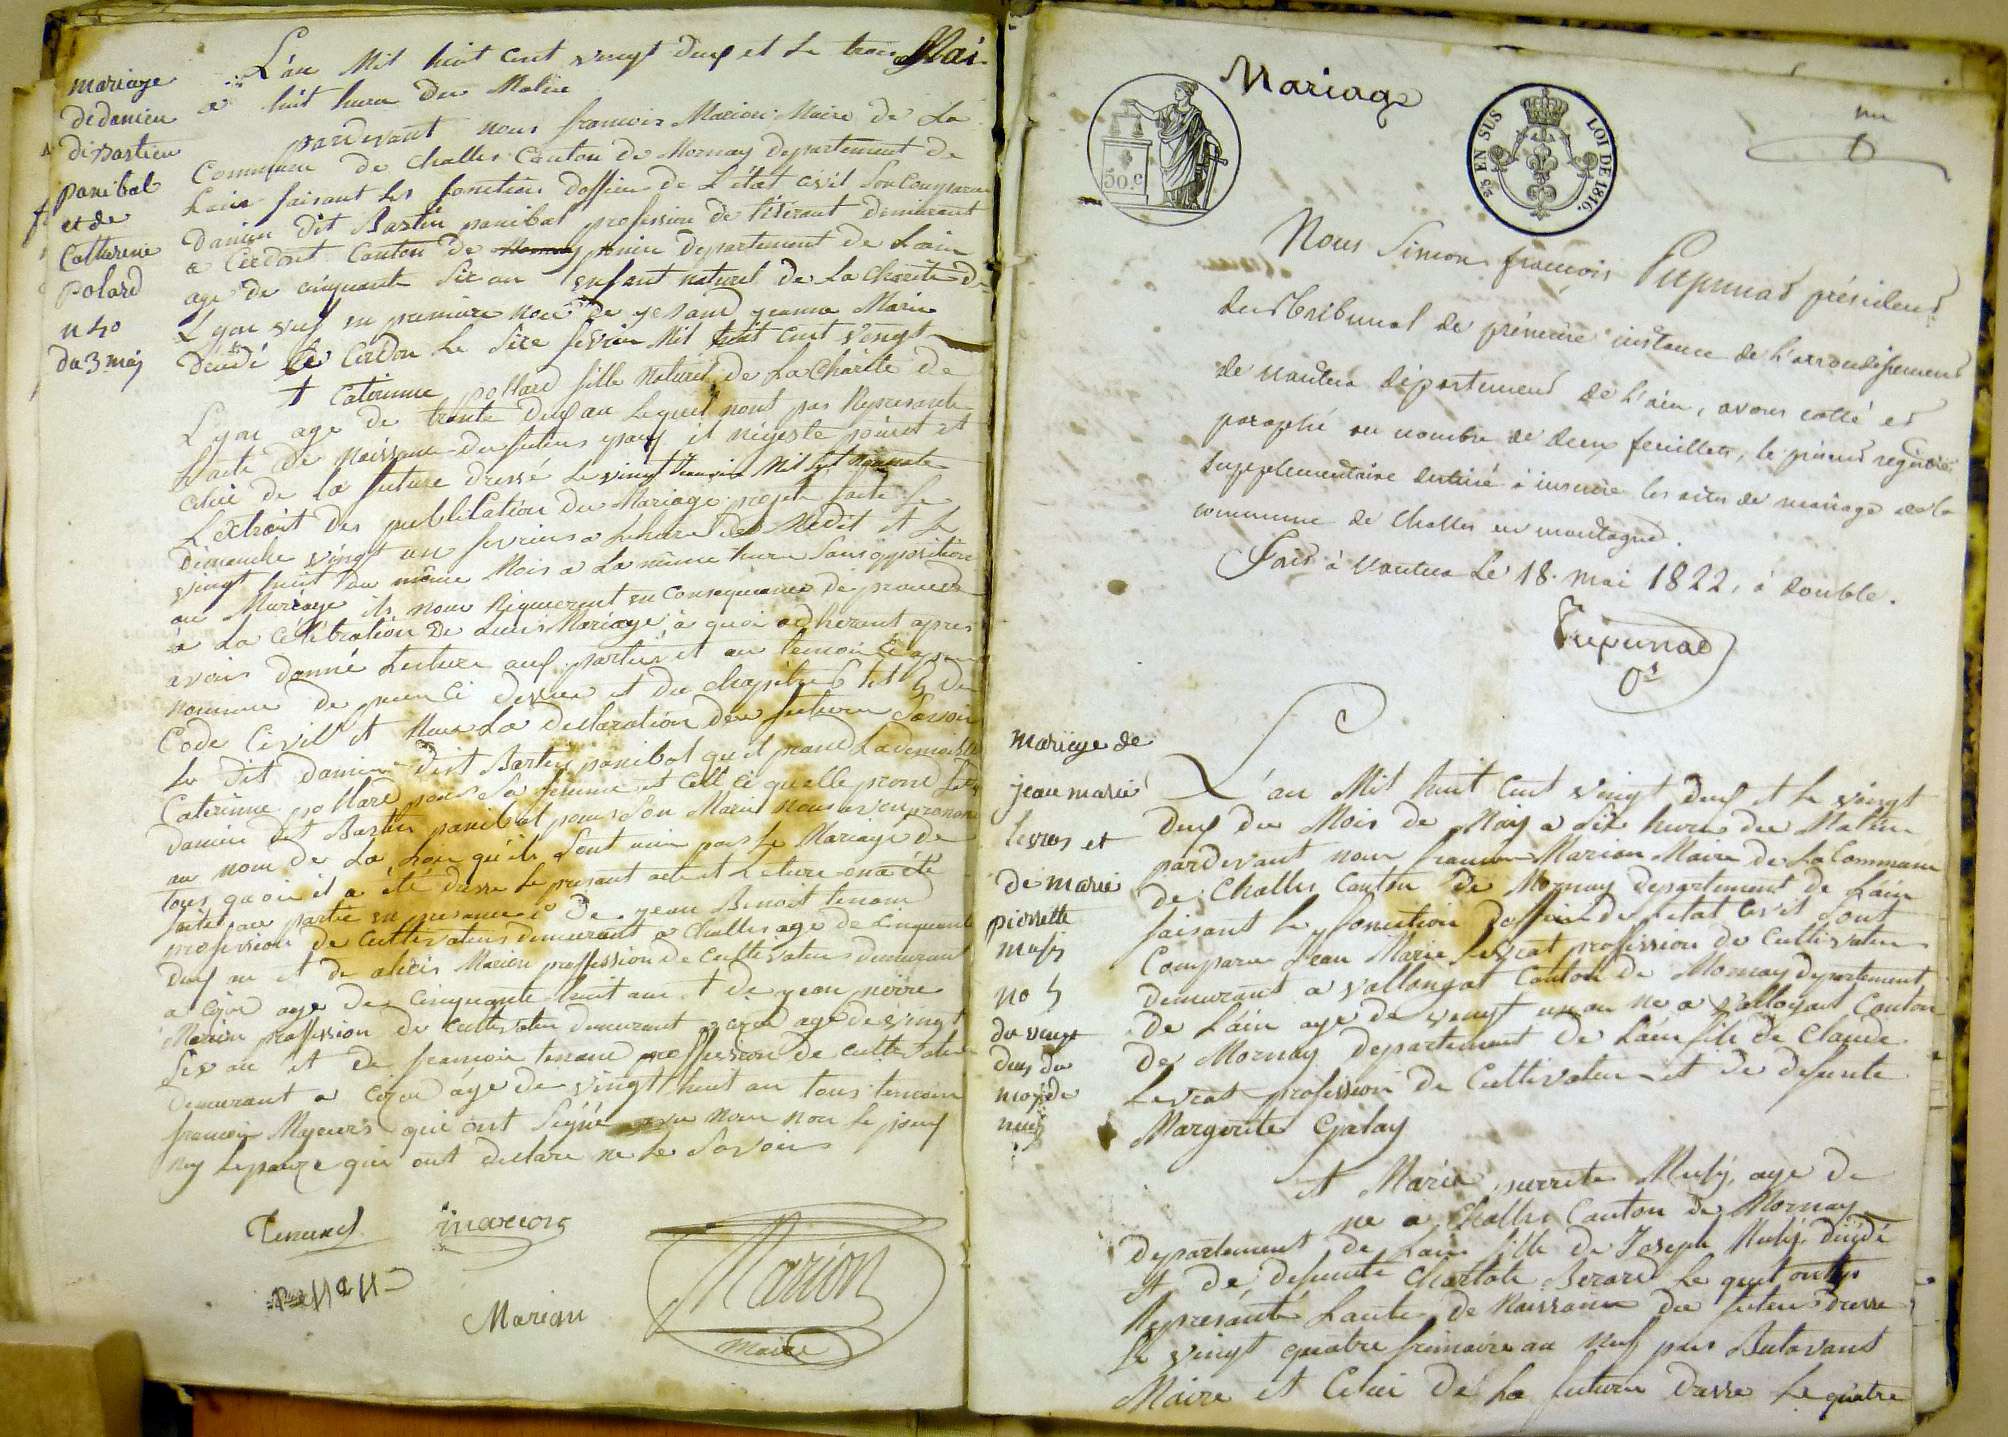 mariage
de damien
dit Bastien
panibal
et de
Catherine
polard
n 4o
du 3 maj
L'an Mil huit Cent vingt deux et le trois Mai
a huit heure du Matin
pardevant nous francois Marion Maire de La
Commune de Challes Canton de Mornay Departement de
Lain faisant les fonction doffisier de L'état civil Son Comparu
Damien dit Bastin panibal profession de tisérant demeurant
a Cerdont Canton de poncin Departement de Lain
age de cinquante Six an enfant naturel de La Charite de
Lyon veuf en premiere noce de jeanne Marie
décédé a Cerdon Le Sixe fevrie Mil huit Cent vingt
et Caterinne pollard fille Naturel de La Charite de
Lyon age de trante deux an Lequel nont pas Represante
Lacte de Naissance du futeurs il négeste point et
celui de la future dressé Le vingt Mil Sept
L'extrait des publication du Mariage projete faite Le
Dimanche vingt un fevrier a Lheure de Medit et Le
vingt huit du même Mois a La même heure Sans opposition
au Mariage ils nous Requierent en Consequance de proceder
à La Célébration de Leurs Mariage à quoi adherant apres
avoir donné Lecture aux parties et au temoin
nommé de piece ci dessus et du chapitre 6 du
Code Civil et Recu La declaration des futeurs Savoir
Le dit damien dit Bastin panibal qu'il prand La demoiselle
Caterinne pollard pour Sa femme et Celle Ci quelle prand Le
damien dit Bastin panibal pour Son Marie nous avon prononce
au nom de La Loi qu'ils Sont unie par Le Mariage de
tous quoi il a été dresse Le presant acte et Lecture en a été
faite au partie en presance 1° De jean Benoit tenand
profession de Cultivateur demeurant a Challes age de Cinquante
deux an et de alexis Marion proffession de Cultivateur demeurant
a age de Cinquante huit an et de jean pierre
Marion proffession de Cultivateur demeurant a age de vingt
Six an et de francois tenand proffession de cultivateur
demeurant a age de vingt huit an tous temoin
francois Majeurs qui ont Signé avec nous non Le
ny Lepouze qui ont declare ne Le Savoir
Tenand marion
Marion
Marion
Maire
Mariage
50.c
25 EN SUS LOI DE 1816.
un
Nous Simon françois président
du Tribunal de prémière instance de l'arrondissement
de nantua département de l'ain, avons cotté et
paraphé au nombre de deux feuillets, le présent registre
supplementaire destiné à inscrire les actes de mariage de la
commune de Challes en montagne.
Fait à nantua Le 18. mai 1822, à double.
mariage de
jean marie
levras et
de marie
pierrette
n° 5
du vingt
deux du
moy de
maj
L'an Mil huit Cent vingt deux et le vingt
deux du Mois de May a Six heure du Matin
pardevant nous francois Marion Maire de La Commune
de Challes Canton de Mornay Departement de Lain
faisant les fonction doffisier de l'etat civil Sont
Comparu Jean Marie Levrat profession de Cultivateur
demeurant a Canton de Mornay Departement
de Lain age de vingt un an ne a Canton
de Mornay Departement de Lain fils de Claude
Levrat profession de Cultivateur et de defunte
Margerite
et Marie pierrette age de
ne a Challes Canton de Mornay
Departement de Lain fille de Joseph décédé
et de defunte Charlote Berard Le quel ont
Représanté Lacte de Naissance du futeur dresse
Le vingt quatre frimaire an neuf par
Maire et Celui de La future dresse Le quatre